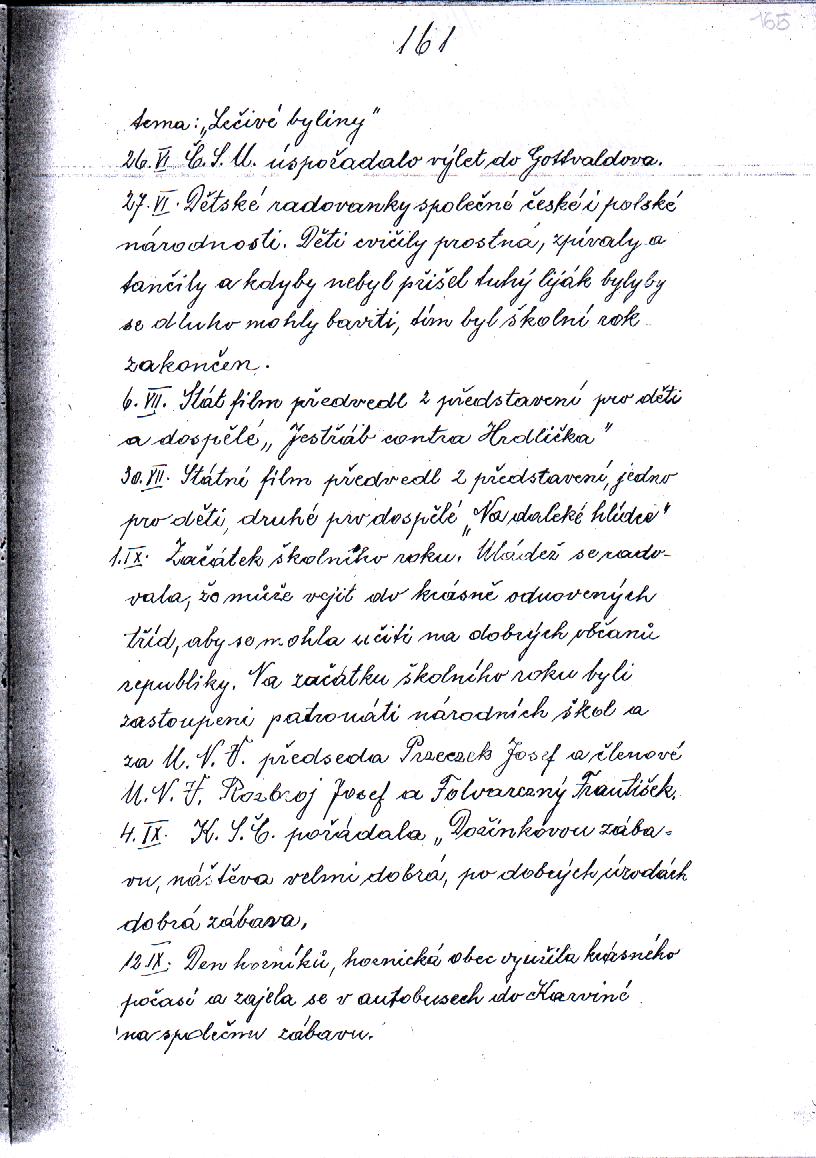 161
165
tema: „Lečivé byliny"
26.VI Č.S.M. úspořádalo výlet do Gottvaldova.
27.VI. Dětské radovanky společné české i polské
národnosti. Děti cvičily prostná, zpívaly a
tančily a kdyby nebyl přišel tuhý liják bylyby
se dluho mohly baviti, tím byl školní rok
zakončen.
6.VII. Stát film předvedl 2 představení pro děti
a dospělé „Jestřáb contra Hrdlička"
30.VII. Státní film předvedl 2 představení, jedno
pro děti, druhé pro dospělé „Na daleké hlídce"
1.IX. Začátek školního roku. Mládež se rado-
vala, že může vejít do krásně odnovených
tříd, aby se mohla učiti na dobrých občanů
republiky. Na začátku školního roku byli
zastoupeni patronáti národních škol a
za M.N.V. předseda Przeczek Josef a členové
M.N.V. Rozbroj Josef a Folvarczný František.
4.IX. K.S.Č. pořádala „Dožínkovou zába-
vu, náštěva velmi dobrá, po dobrých úrodách
dobrá zábava.
12.IX. Den horníků, hornická obec využila krásného
počasí a zajela se v autobusech do Karviné
na společnu zábavu.